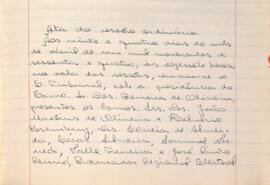 Ata da sessão ordinária
Aos vinte e quatro dias do mês
de abril de mil novecentos e
sessenta e quatro, às dezessete horas,
na sala das sessões, reuniu-se o
E. Tribunal, sob a presidência do
Exmo. Sr. Des. Ferreira de Oliveira,
presentes os Exmos. Srs. Des. João
Martins de Oliveira e
Drs. Correia de Almei-
da, Cesar Silveira,
Valle Ferreira e José Paulo
Procurador Regional Eleitoral